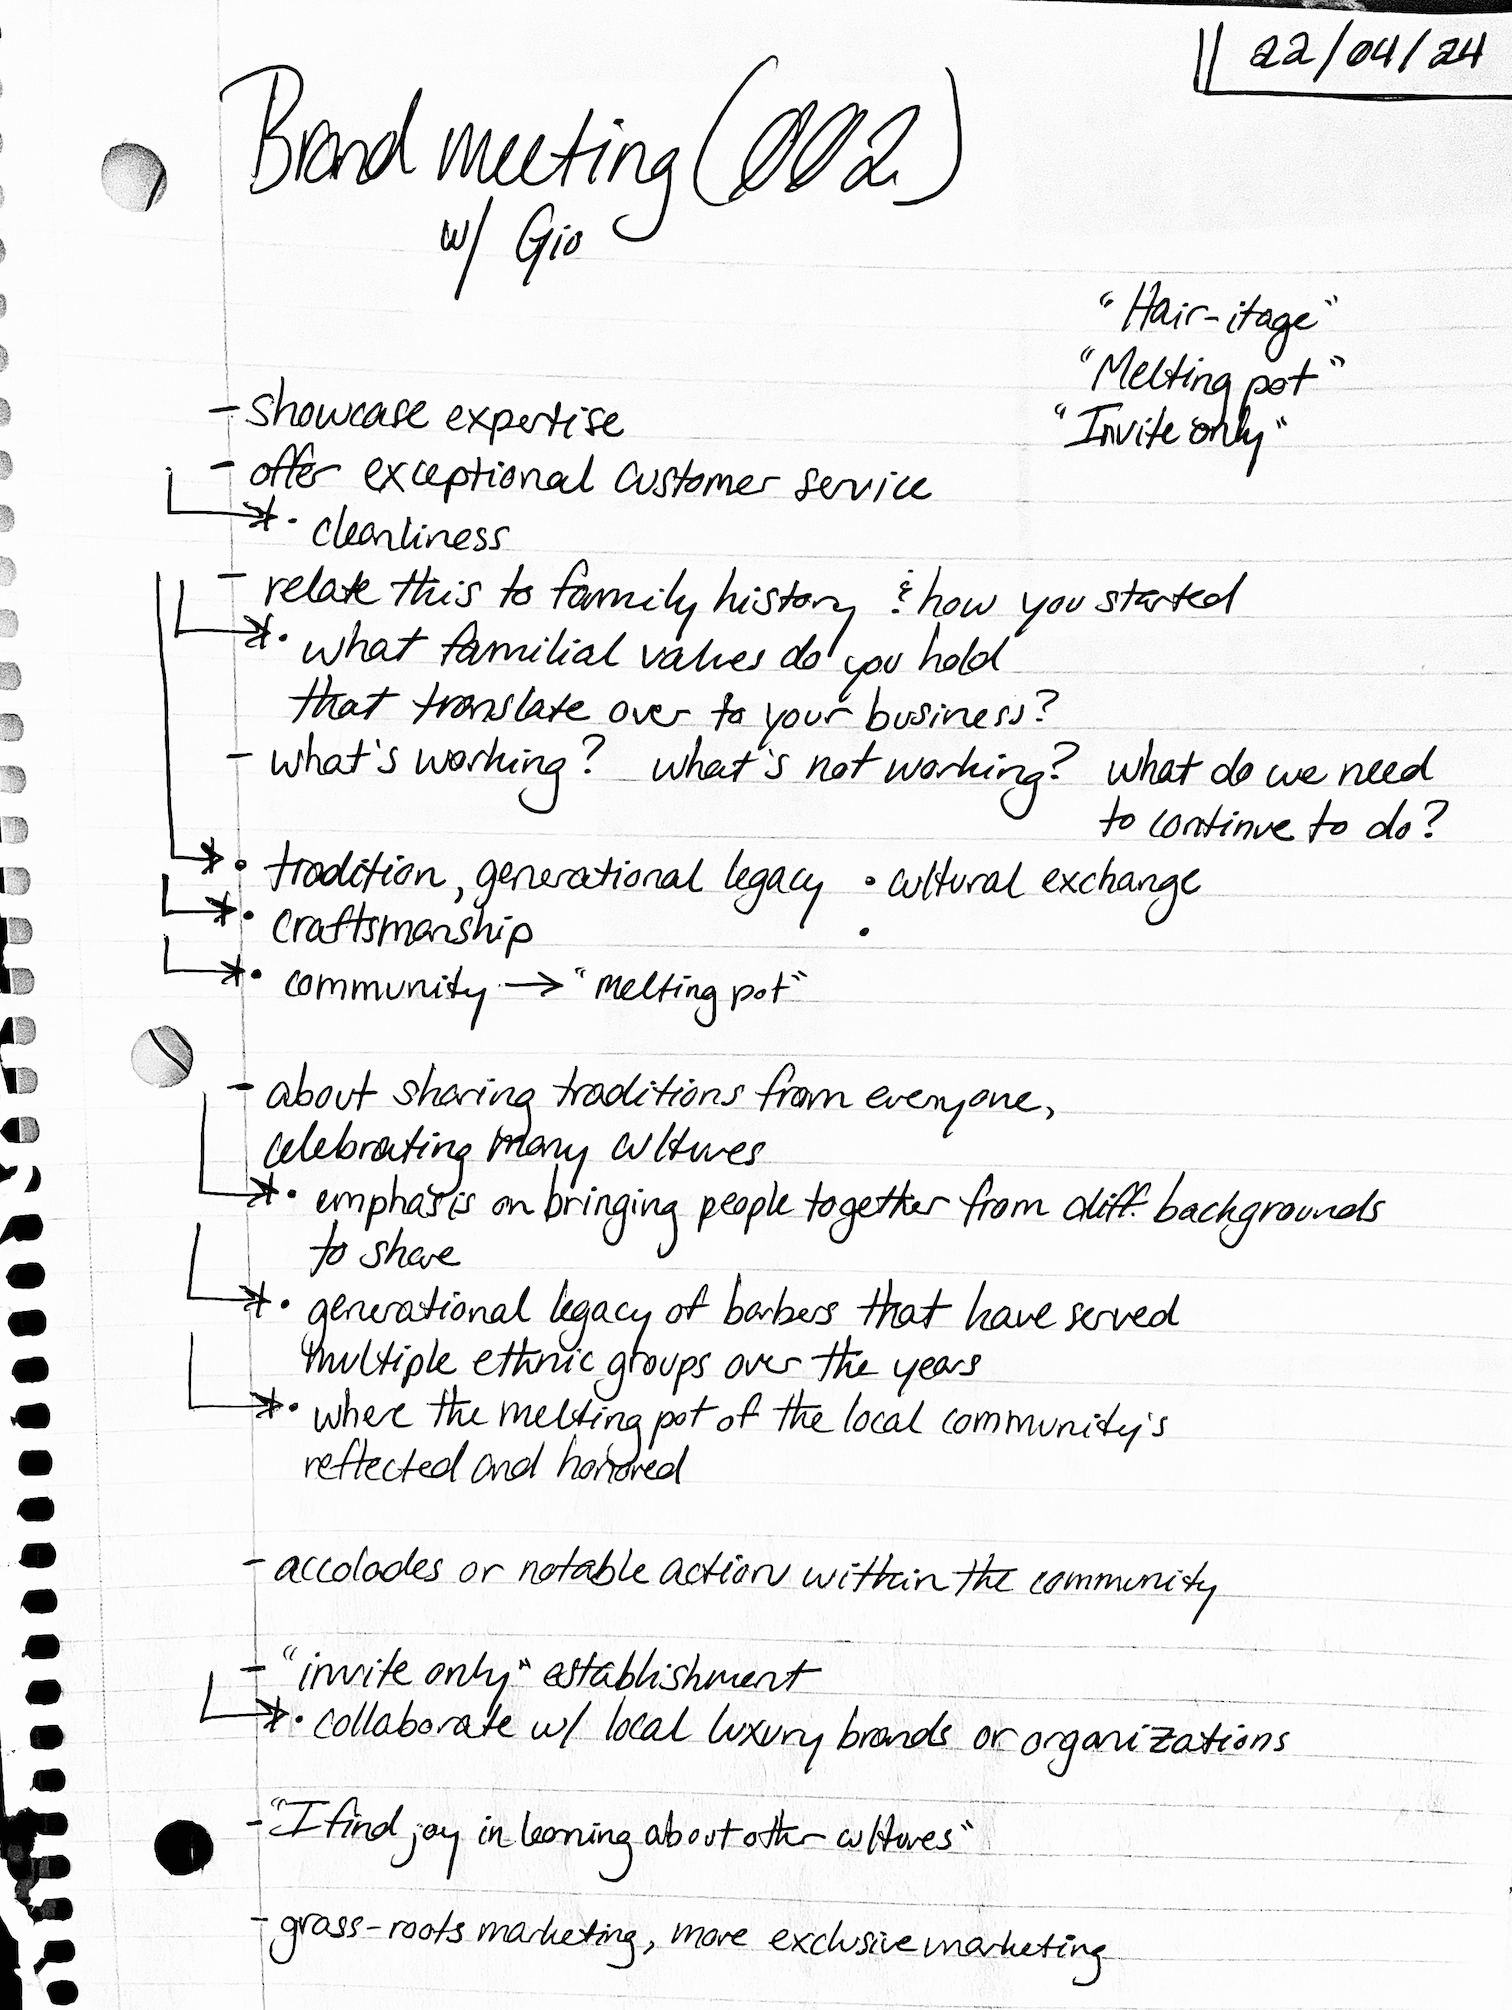 22/04/24
Brand meeting (002)
w/ Gio
"Hair-itage"
"Melting pot"
"Invite only"
- showcase expertise
- offer exceptional customer service
• cleanliness
- relate this to family history & how you started
• what familial values do you hold
that translate over to your business?
- what's working? what's not working? what do we need
to continue to do?
• tradition, generational legacy • cultural exchange
• craftsmanship •
• community → "melting pot"
- about sharing traditions from everyone,
celebrating many cultures
• emphasis on bringing people together from diff. backgrounds
to share
• generational legacy of barbers that have served
multiple ethnic groups over the years
• where the melting pot of the local community's
reflected and honored
- accolades or notable action within the community
- "invite only" establishment
• collaborate w/ local luxury brands or organizations
- "I find joy in learning about other cultures"
- grass-roots marketing, more exclusive marketing